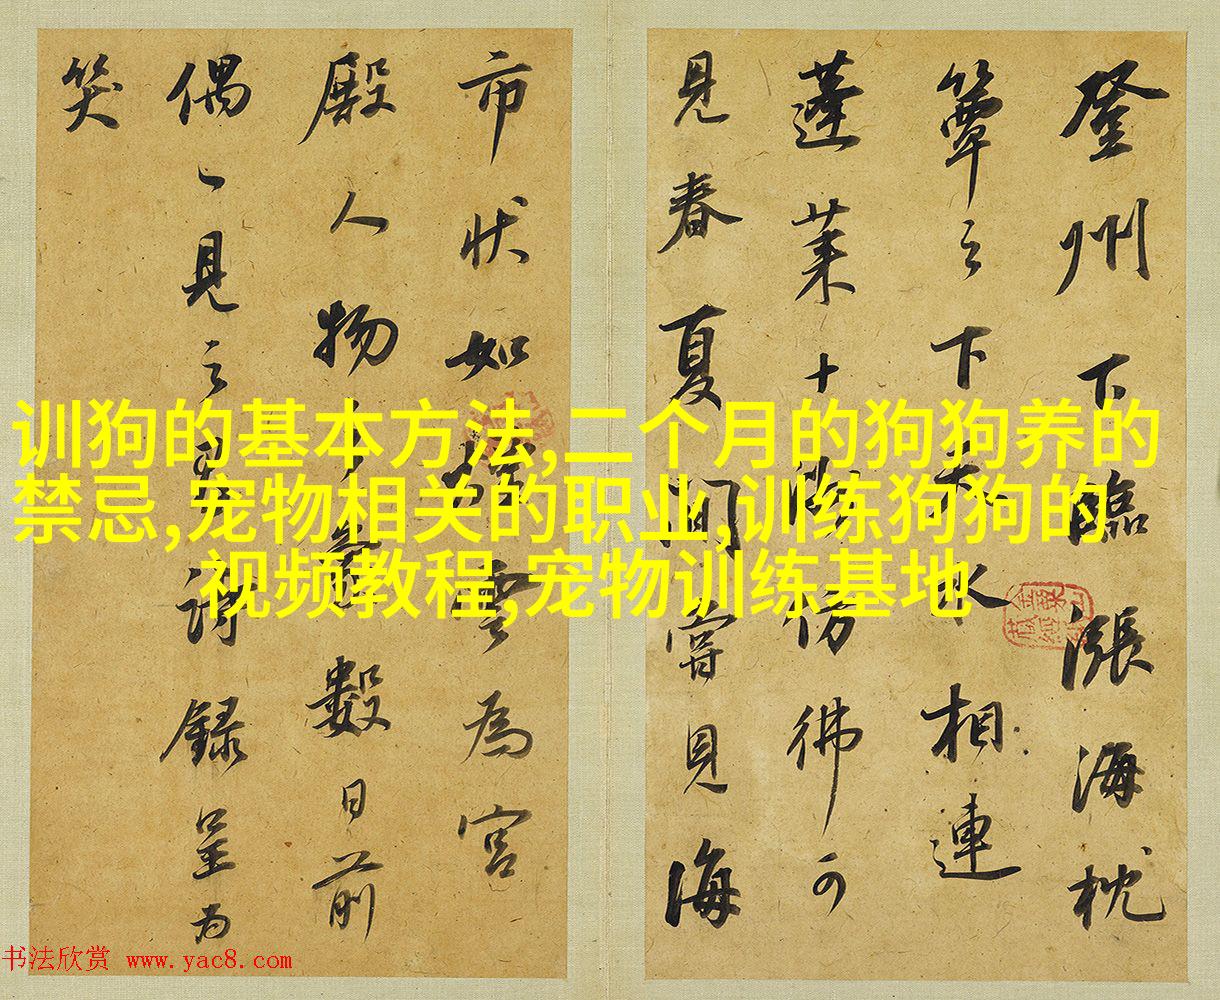 登州下臨漲海枕
簟之下天水相連
蓬莱十隔仿彿可
見春夏間嘗見海
市状如煙雲為宮
殿人物數日前
偶〻見之詩録呈為
笑
训狗的基本方法,二个月的狗狗养的
禁忌,宠物相关的职业,训练狗狗的
视频教程,宠物训练基地
书法欣赏 www.yac8.com